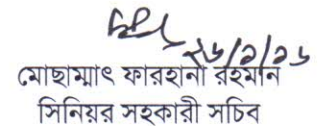 ২৬/১/২৬
মোছাম্মাৎ ফারহানা রহমান
সিনিয়র সহকারী সচিব